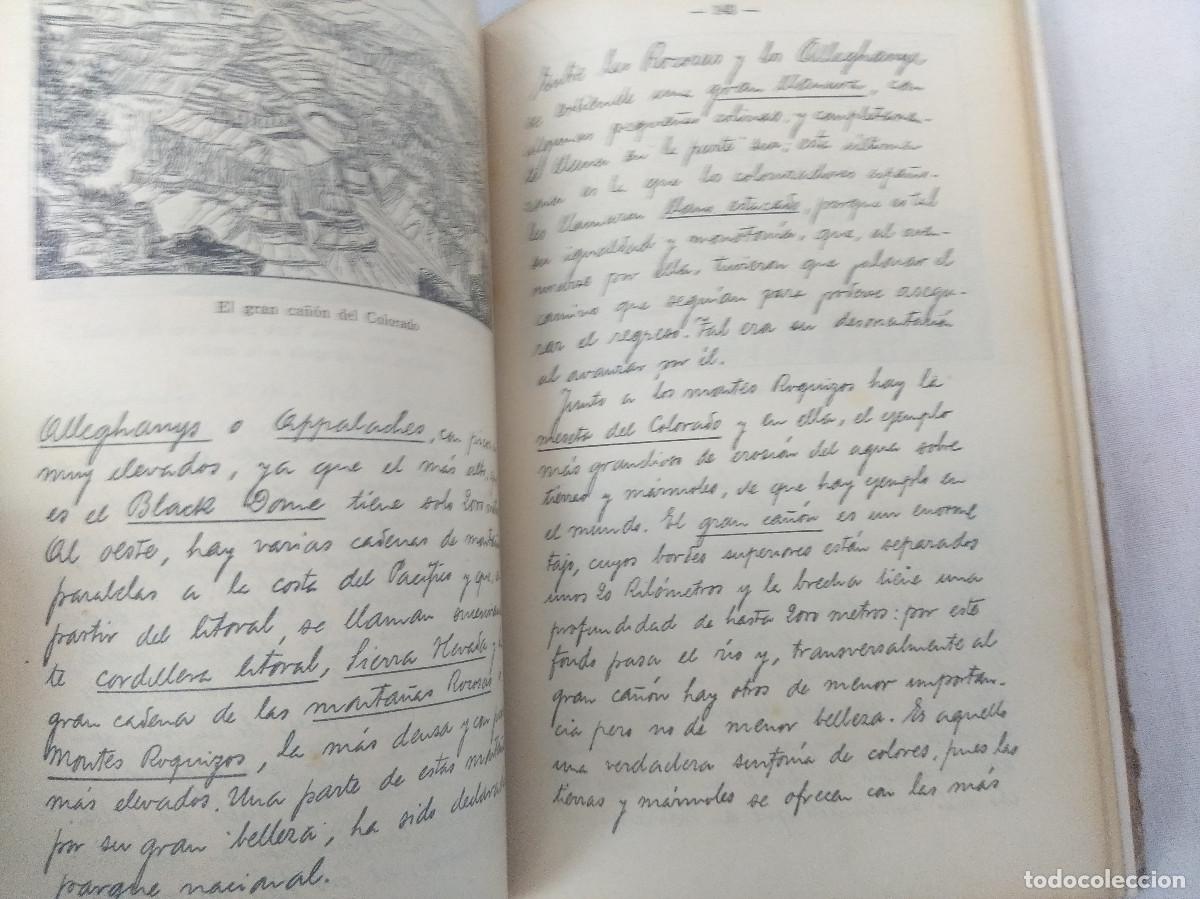 El gran cañón del Colorado
Alleghanys o Appalaches, con picos
muy elevados, ya que el más alto,
es el Black Dome tiene solo 2000
Al oeste, hay varias cadenas de
paralelas a la costa del Pacífico y que, a
partir del litoral, se llaman
te cordillera litoral, Sierra Nevada y
gran cadena de las montañas Rocosas o
Montes Roquizos, la más densa y con
más elevados. Una parte de estas
por su gran belleza, ha sido
parque nacional.
— 143 —
Entre las Rocosas y los Alleghanys
se extiende una gran llanura, con
algunas pequeñas colinas, y
en la parte sur; esta última
zona es la que los colonizadores españo-
les llamaron llano estacado, porque es tal
su igualdad y monotonía, que, al aven-
turarse por ella, tuvieron que jalonar el
camino que seguían para poderse asegu-
rar el regreso. Tal era su desorientación
al avanzar por él.
Junto a los montes Roquizos hay la
meseta del Colorado y en ella, el ejemplo
más grandioso de erosión del agua sobre
tierras y mármoles, de que hay ejemplo en
el mundo. El gran cañón es un enorme
tajo, cuyos bordes superiores están separados
unos 20 Kilómetros y la brecha tiene una
profundidad de hasta 2000 metros: por este
fondo pasa el río y, transversalmente al
gran cañón hay otros de menor importan-
cia pero no de menor belleza. Es aquello
una verdadera sinfonía de colores, pues las
tierras y mármoles se ofrecen con las más
todocoleccion